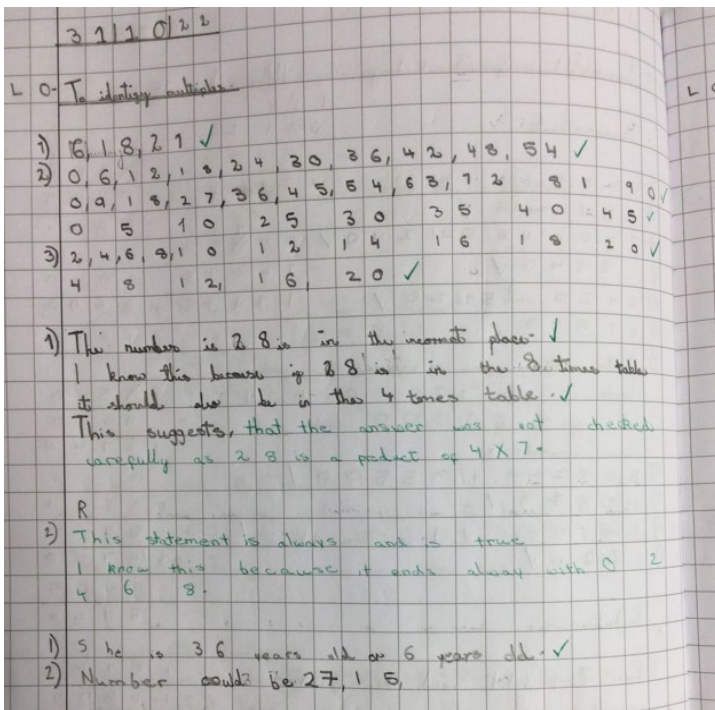 31/10/22
L O- To identify multiples.
1) 6, 18, 21 ✓
2) 0, 6, 12, 18, 24, 30, 36, 42, 48, 54 ✓
0, 9, 18, 27, 36, 45, 54, 63, 72 81 90 ✓
0 5 10 25 30 35 40 45 ✓
3) 2, 4, 6, 8, 10 12 14 16 18 20 ✓
4 8 12, 16, 20 ✓
1) The number is 28 is in the incorrect place. ✓
I know this because if 28 is in the 8 times table
it should also be in the 4 times table. ✓
This suggests, that the answer was not checked
carefully as 28 is a product of 4 x 7.
R
2) This statement is always and is true
I know this because it ends alway with 0 2
4 6 8.
1) She is 36 years old or 6 years old. ✓
2) Number could be 27, 15,
L O